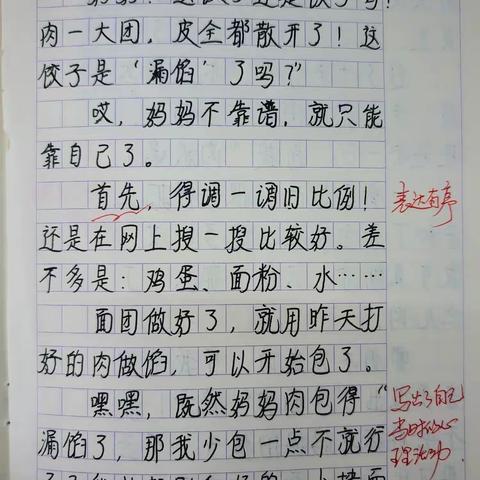 肉一大团，皮全都散开了！这
饺子是‘漏馅’了吗？”
哎，妈妈不靠谱，就只能
靠自己了。
首先，得调一调旧比例！
表达有序
还是在网上搜一搜比较好。差
不多是：鸡蛋、面粉、水……
面团做好了，就用昨天打
好的肉做馅，可以开始包了。
嘿嘿，既然妈妈肉包得“
写出了自己
漏馅了，那我少包一点不就行
当时的心
理活动